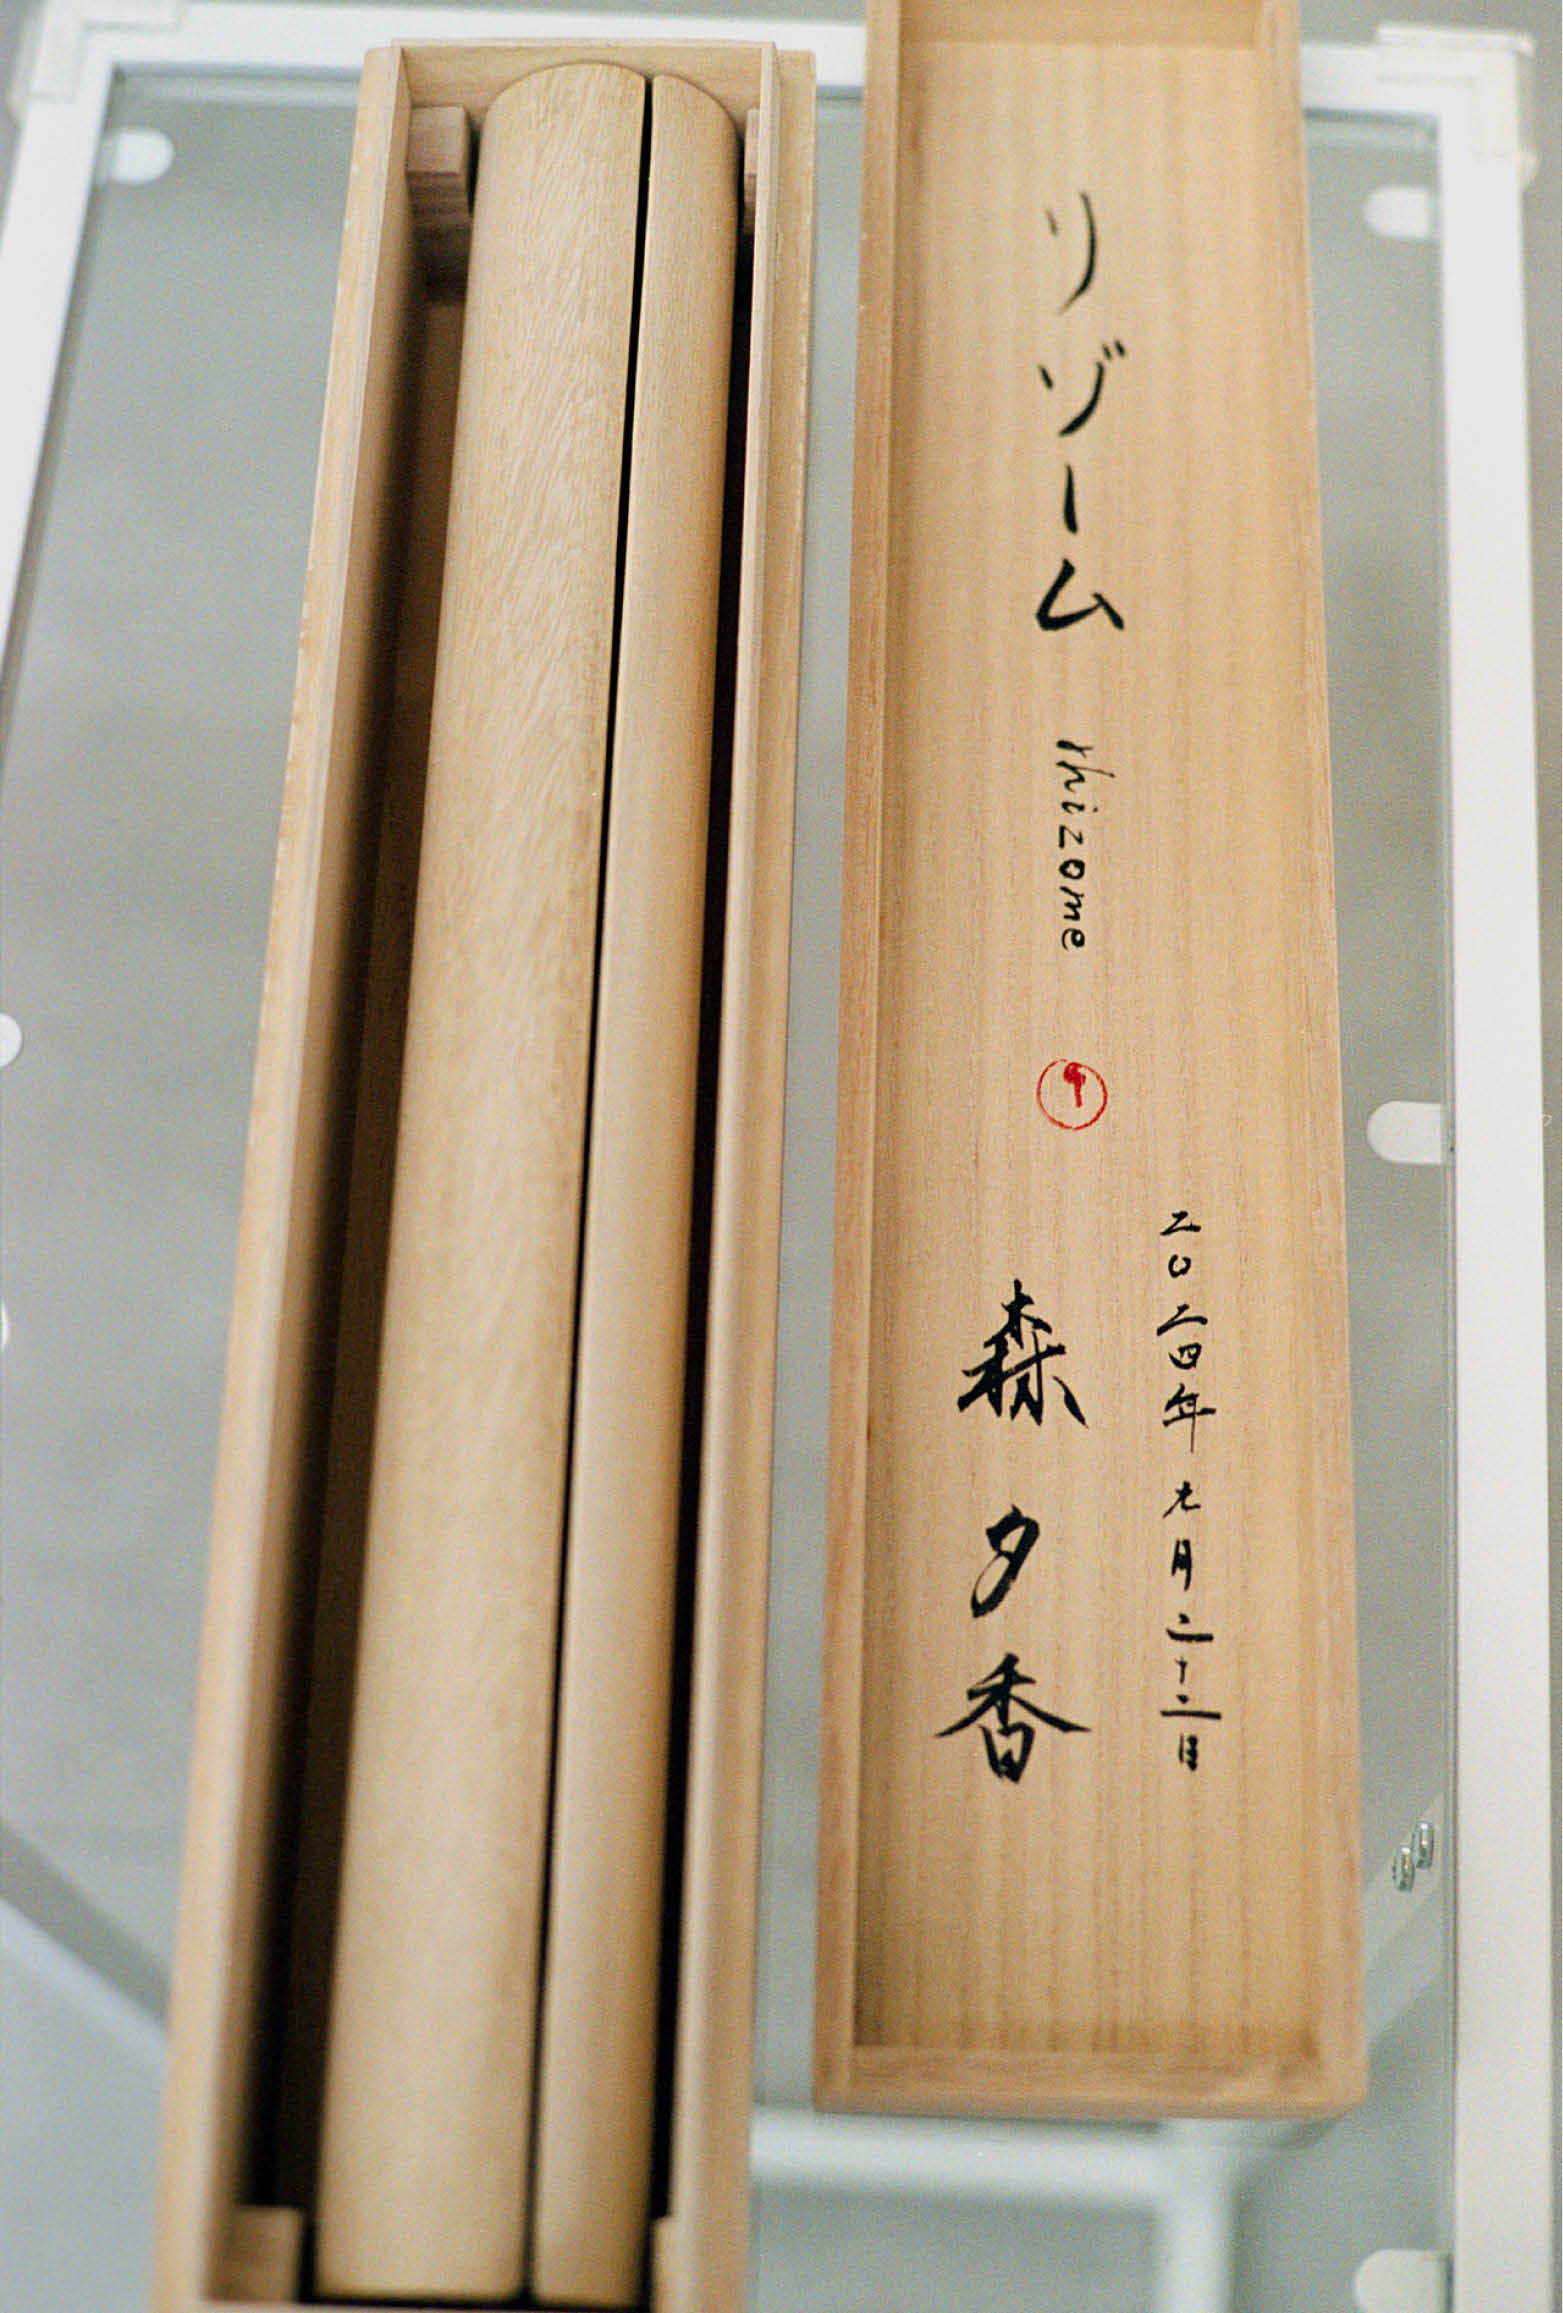 リゾーム rhizome
二〇二四年 九月二十二日
森 夕香